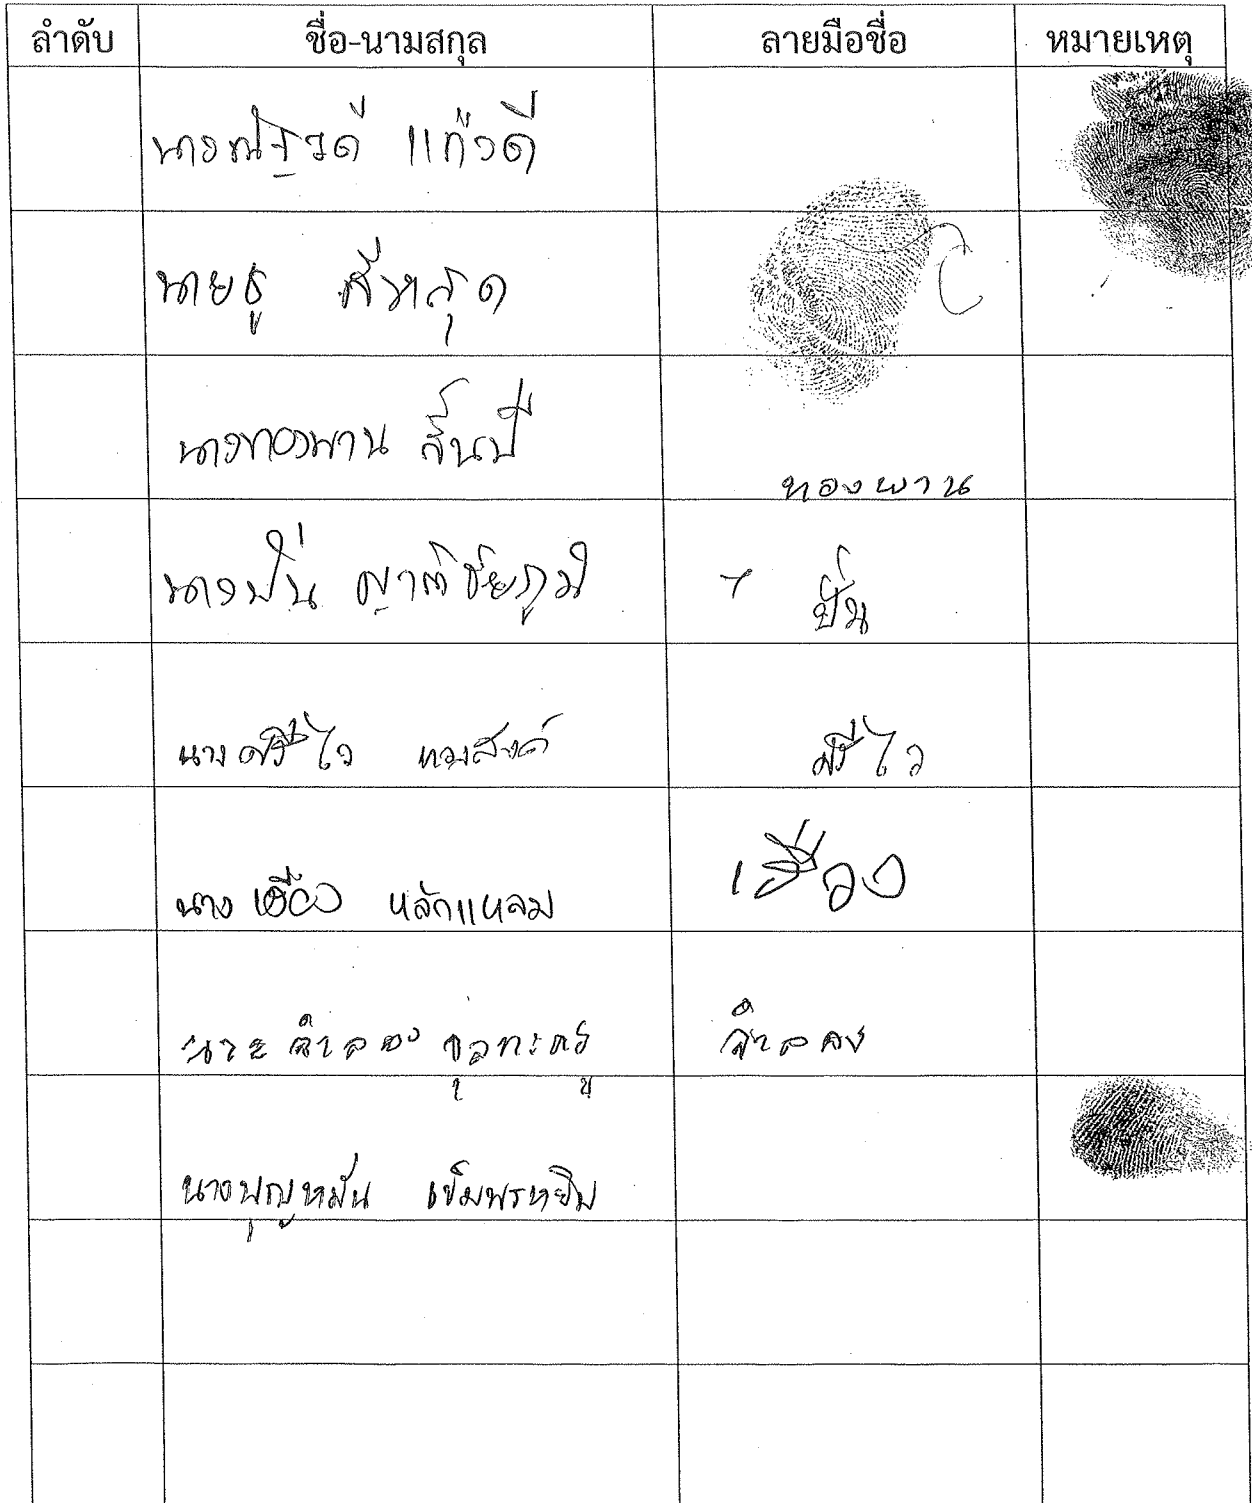 ลำดับ ชื่อ-นามสกุล ลายมือชื่อ หมายเหตุ
นางณัฐวดี แก้วดี
นายธู
นางทองพาน สิ้นปี
ทองพาน
นางปั่น ญาติชัยภูมิ ปั่น
นางศรีไว ทองสงค์ ศรีไว
นาง เฮือง หลักแหลม เฮือง
นาย จำลอง จุลทะกู จำลอง
นางบุญหมั่น เข็มพรหยิบ